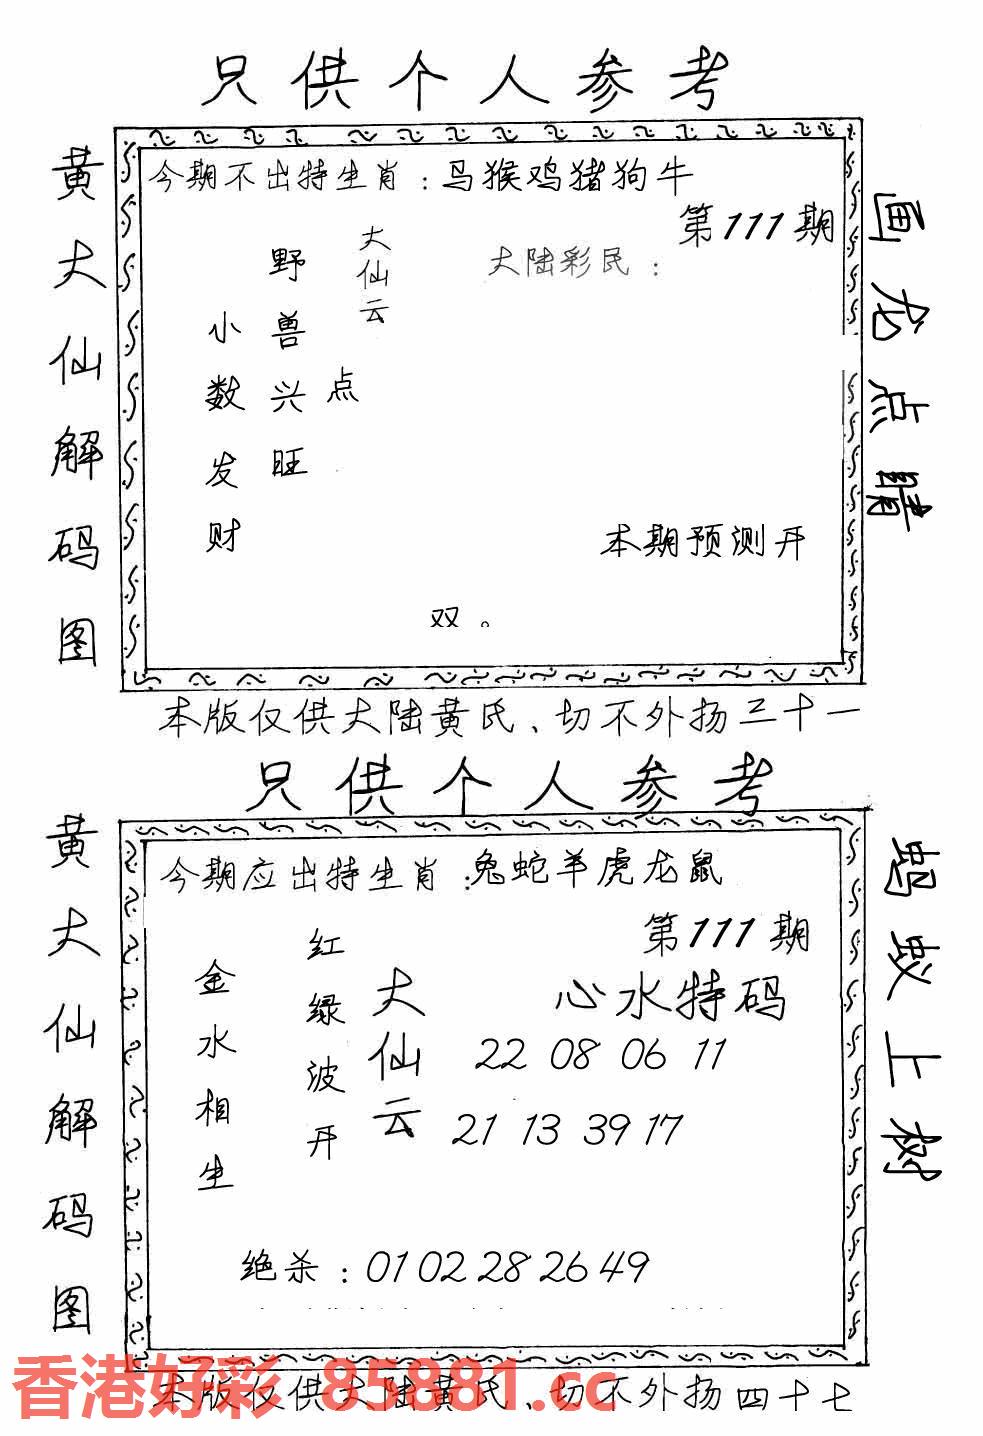 只供个人参考
黄大仙解码图
今期不出特生肖：马猴鸡猪狗牛
第111期
大陆彩民：
大仙云
野兽兴旺
点
小数发财
本期预测开
双。
画龙点睛
本版仅供大陆黄氏、切不外扬三十一
只供个人参考
黄大仙解码图
今期应出特生肖：兔蛇羊虎龙鼠
第111期
心水特码
大仙云
红绿波开
金水相生
22 08 06 11
21 13 39 17
绝杀：01 02 28 26 49
蚂蚁上树
香港好彩 85881.cc
本版仅供大陆黄氏、切不外扬四十七